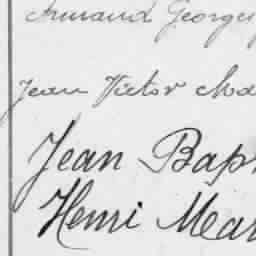 Armand Georges
Jean Victor
Jean Bap
Henri Mar